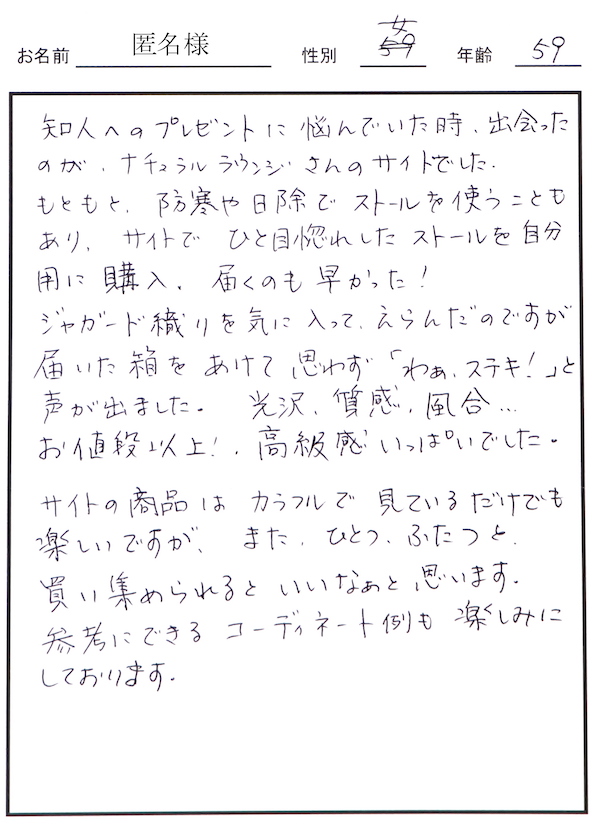 お名前 匿名様 性別 女 年齢 59
知人へのプレゼントに悩んでいた時、出会った
のが、ナチュラルラウンジさんのサイトでした。
もともと、防寒や日除でストールを使うことも
あり、サイトでひと目惚れしたストールを自分
用に購入、届くのも早かった!
ジャガード織りを気に入って、えらんだのですが
届いた箱をあけて思わず「わぁ、ステキ!」と
声が出ました。光沢、質感、風合…
お値段以上!、高級感いっぱいでした。
サイトの商品はカラフルで見ているだけでも
楽しいですが、また、ひとつ、ふたつと、
買い集められるといいなぁと思います。
参考にできるコーディネート例も楽しみに
しております。